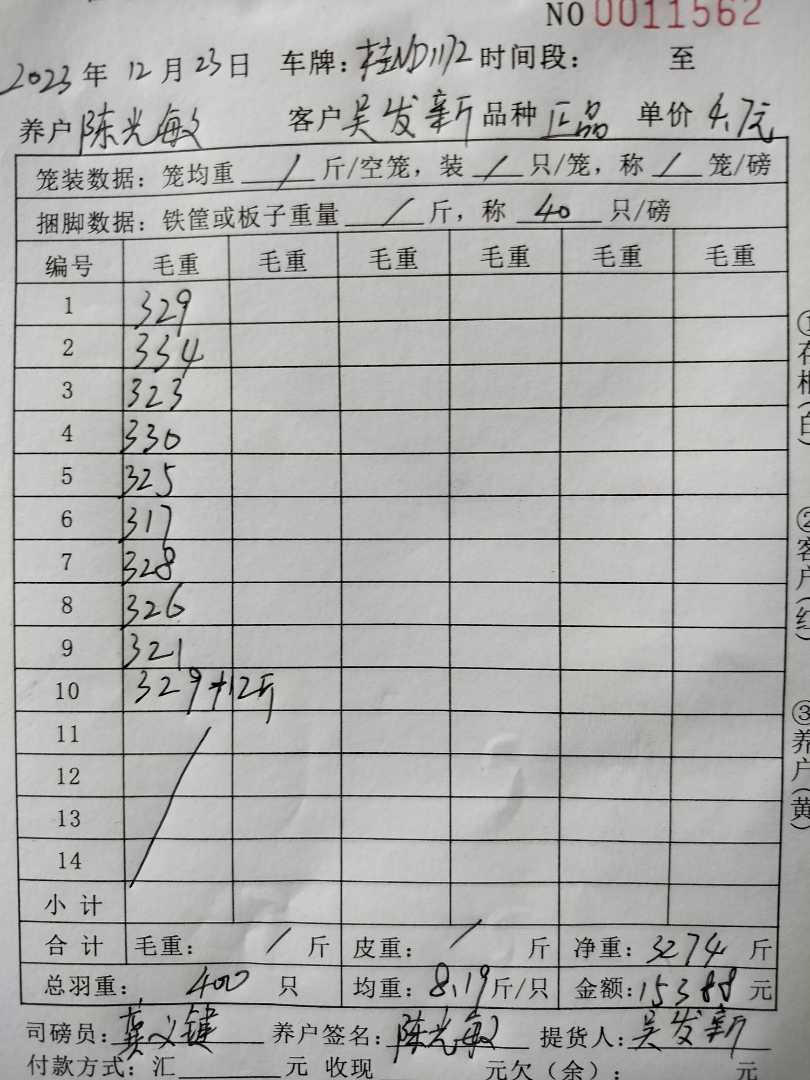 NO 0011562
2023年 12月 23日 车牌:桂ND1172 时间段: 至
养户 陈光敏 客户 吴发新 品种 正品 单价 4.7元
笼装数据:笼均重 / 斤/空笼,装 / 只/笼,称 / 笼/磅
捆脚数据:铁筐或板子重量 / 斤,称 40 只/磅
编号 毛重 毛重 毛重 毛重 毛重 毛重
1 329
2 334
3 323
4 330
5 325
6 317
7 328
8 326
9 321
10 329+12斤
11
12
13
14
小计
合计 毛重: / 斤 皮重: / 斤 净重:3274 斤
总羽重: 400 只 均重:8.19斤/只 金额:15388元
司磅员:龚义键 养户签名:陈光敏 提货人:吴发新
付款方式:汇 元 收现 元欠(余): 元
①存根(白)
②客户(红)
③养户(黄)